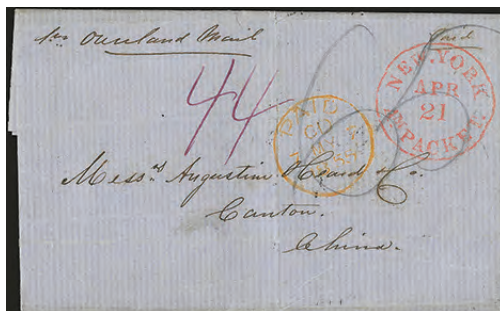 pr Overland Mail
Paid
44
NEW-YORK
APR
21
AM PACKET
PAID
Messrs Augustine Heard & Co.
Canton.
China.